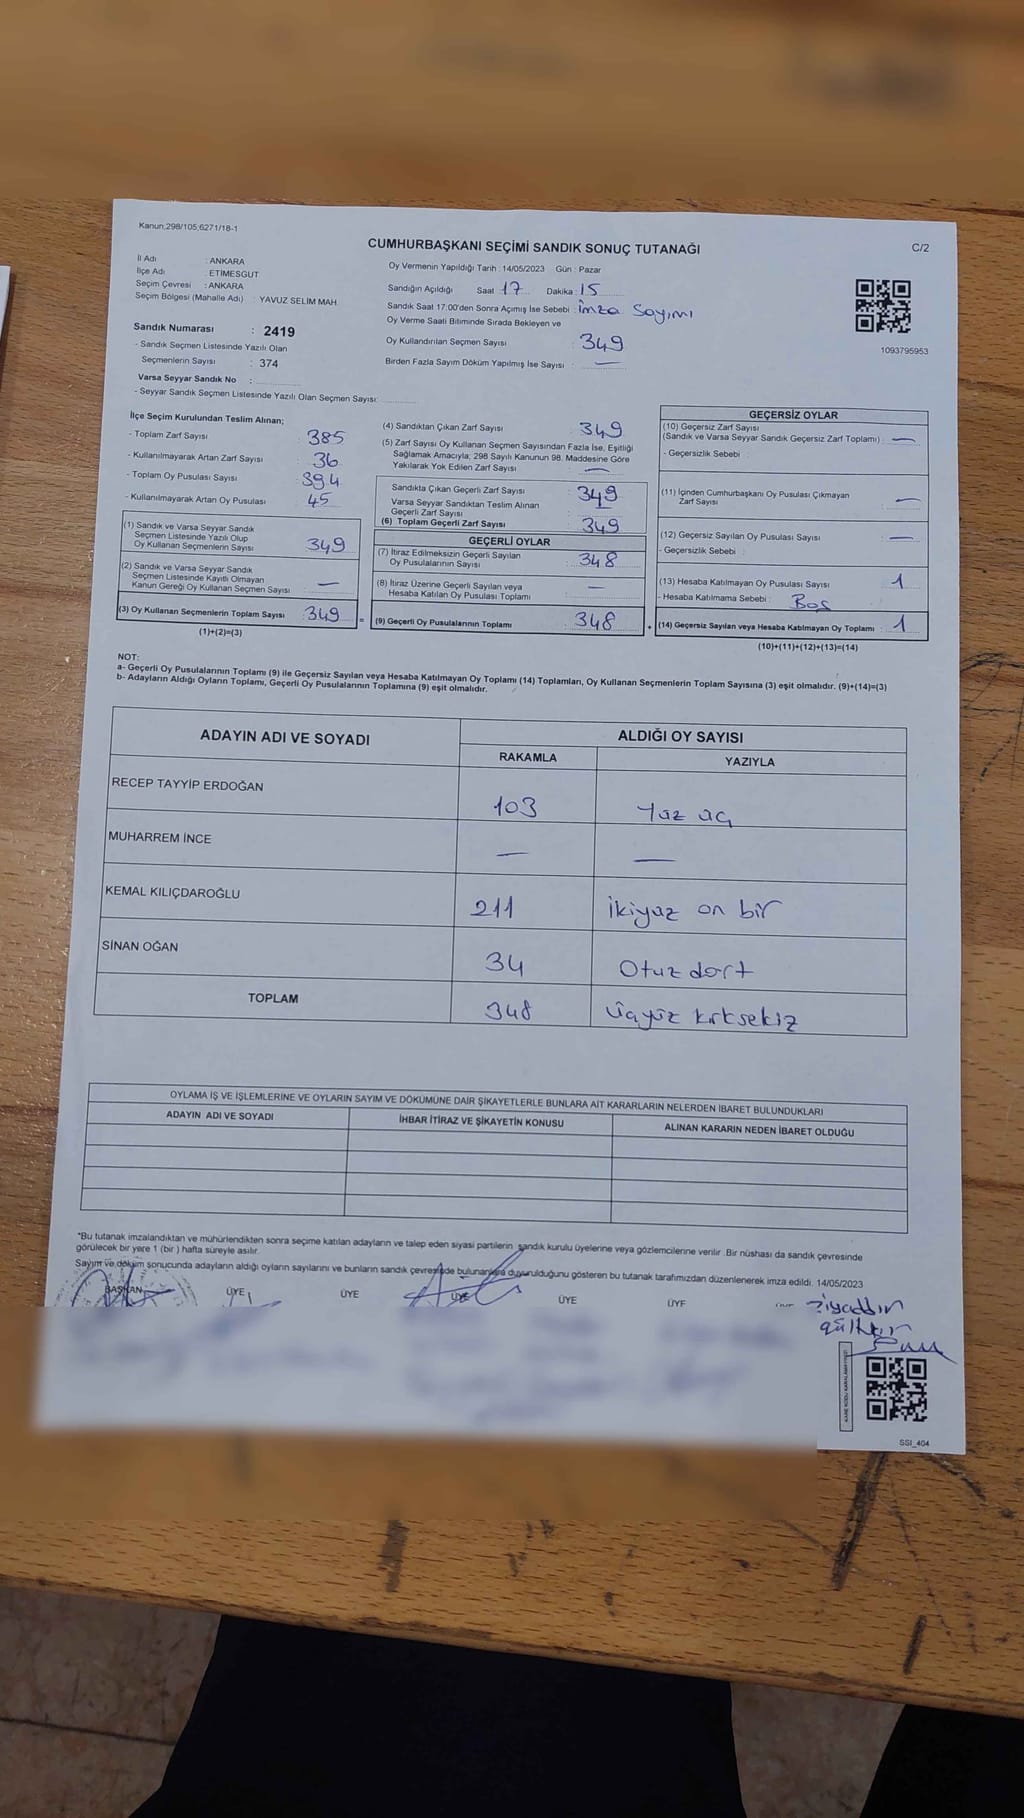 Kanun,298/105,6271/18-1
CUMHURBAŞKANI SEÇİMİ SANDIK SONUÇ TUTANAĞI
C/2
İl Adı : ANKARA
İlçe Adı : ETİMESGUT
Seçim Çevresi : ANKARA
Seçim Bölgesi (Mahalle Adı) : YAVUZ SELİM MAH.
Sandık Numarası : 2419
- Sandık Seçmen Listesinde Yazılı Olan
Seçmenlerin Sayısı : 374
Varsa Seyyar Sandık No :
- Seyyar Sandık Seçmen Listesinde Yazılı Olan Seçmen Sayısı:
Oy Vermenin Yapıldığı Tarih : 14/05/2023 Gün : Pazar
Sandığın Açıldığı Saat : 17 Dakika : 15
Sandık Saat 17:00'den Sonra Açımış İse Sebebi : İmza Sayımı
Oy Verme Saati Bitiminde Sırada Bekleyen ve
Oy Kullandırılan Seçmen Sayısı : 349
Birden Fazla Sayım Döküm Yapılmış İse Sayısı : —
1093795953
İlçe Seçim Kurulundan Teslim Alınan;
- Toplam Zarf Sayısı : 385
- Kullanılmayarak Artan Zarf Sayısı : 36
- Toplam Oy Pusulası Sayısı : 394
- Kullanılmayarak Artan Oy Pusulası : 45
(1) Sandık ve Varsa Seyyar Sandık
Seçmen Listesinde Yazılı Olup
Oy Kullanan Seçmenlerin Sayısı : 349
(2) Sandık ve Varsa Seyyar Sandık
Seçmen Listesinde Kayıtlı Olmayan
Kanun Gereği Oy Kullanan Seçmen Sayısı : —
(3) Oy Kullanan Seçmenlerin Toplam Sayısı : 349 =
(1)+(2)=(3)
(4) Sandıktan Çıkan Zarf Sayısı : 349
(5) Zarf Sayısı Oy Kullanan Seçmen Sayısından Fazla İse, Eşitliği
Sağlamak Amacıyla; 298 Sayılı Kanunun 98. Maddesine Göre
Yakılarak Yok Edilen Zarf Sayısı : —
Sandıkta Çıkan Geçerli Zarf Sayısı : 349
Varsa Seyyar Sandıktan Teslim Alınan
Geçerli Zarf Sayısı : —
(6) Toplam Geçerli Zarf Sayısı : 349
GEÇERLİ OYLAR
(7) İtiraz Edilmeksizin Geçerli Sayılan
Oy Pusulalarının Sayısı : 348
(8) İtiraz Üzerine Geçerli Sayılan veya
Hesaba Katılan Oy Pusulası Toplamı : —
(9) Geçerli Oy Pusulalarının Toplamı : 348 +
GEÇERSİZ OYLAR
(10) Geçersiz Zarf Sayısı
(Sandık ve Varsa Seyyar Sandık Geçersiz Zarf Toplamı) : —
- Geçersizlik Sebebi :
(11) İçinden Cumhurbaşkanı Oy Pusulası Çıkmayan
Zarf Sayısı : —
(12) Geçersiz Sayılan Oy Pusulası Sayısı : —
- Geçersizlik Sebebi :
(13) Hesaba Katılmayan Oy Pusulası Sayısı : 1
- Hesaba Katılmama Sebebi : Boş
(14) Geçersiz Sayılan veya Hesaba Katılmayan Oy Toplamı : 1
(10)+(11)+(12)+(13)=(14)
NOT:
a- Geçerli Oy Pusulalarının Toplamı (9) ile Geçersiz Sayılan veya Hesaba Katılmayan Oy Toplamı (14) Toplamları, Oy Kullanan Seçmenlerin Toplam Sayısına (3) eşit olmalıdır. (9)+(14)=(3)
b- Adayların Aldığı Oyların Toplamı, Geçerli Oy Pusulalarının Toplamına (9) eşit olmalıdır.
ADAYIN ADI VE SOYADI ALDIĞI OY SAYISI
RAKAMLA YAZIYLA
RECEP TAYYİP ERDOĞAN 103 Yüz üç
MUHARREM İNCE — —
KEMAL KILIÇDAROĞLU 211 İkiyüz on bir
SİNAN OĞAN 34 Otuz dört
TOPLAM 348 Üçyüz kırksekiz
OYLAMA İŞ VE İŞLEMLERİNE VE OYLARIN SAYIM VE DÖKÜMÜNE DAİR ŞİKAYETLERLE BUNLARA AİT KARARLARIN NELERDEN İBARET BULUNDUKLARI
ADAYIN ADI VE SOYADI İHBAR İTİRAZ VE ŞİKAYETİN KONUSU ALINAN KARARIN NEDEN İBARET OLDUĞU
*Bu tutanak imzalandıktan ve mühürlendikten sonra seçime katılan adayların ve talep eden siyasi partilerin sandık kurulu üyelerine veya gözlemcilerine verilir. Bir nüshası da sandık çevresinde
görülecek bir yere 1 (bir ) hafta süreyle asılır.
Sayım ve döküm sonucunda adayların aldığı oyların sayılarını ve bunların sandık çevresinde bulunanlara duyurulduğunu gösteren bu tutanak tarafımızdan düzenlenerek imza edildi. 14/05/2023
BAŞKAN ÜYE ÜYE ÜYE ÜYE ÜYE
Ziyaddin
SSI_404